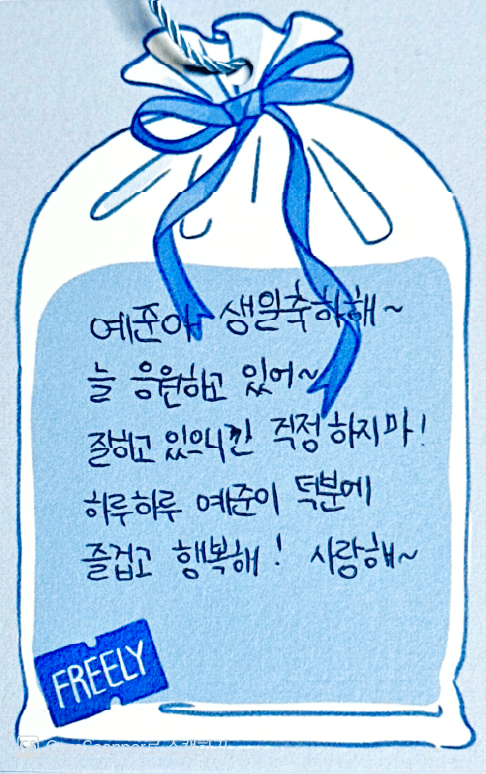 예준아 생일축하해~
늘 응원하고 있어~
잘하고 있으니깐 걱정하지마!
하루하루 예준이 덕분에
즐겁고 행복해! 사랑해~
FREELY